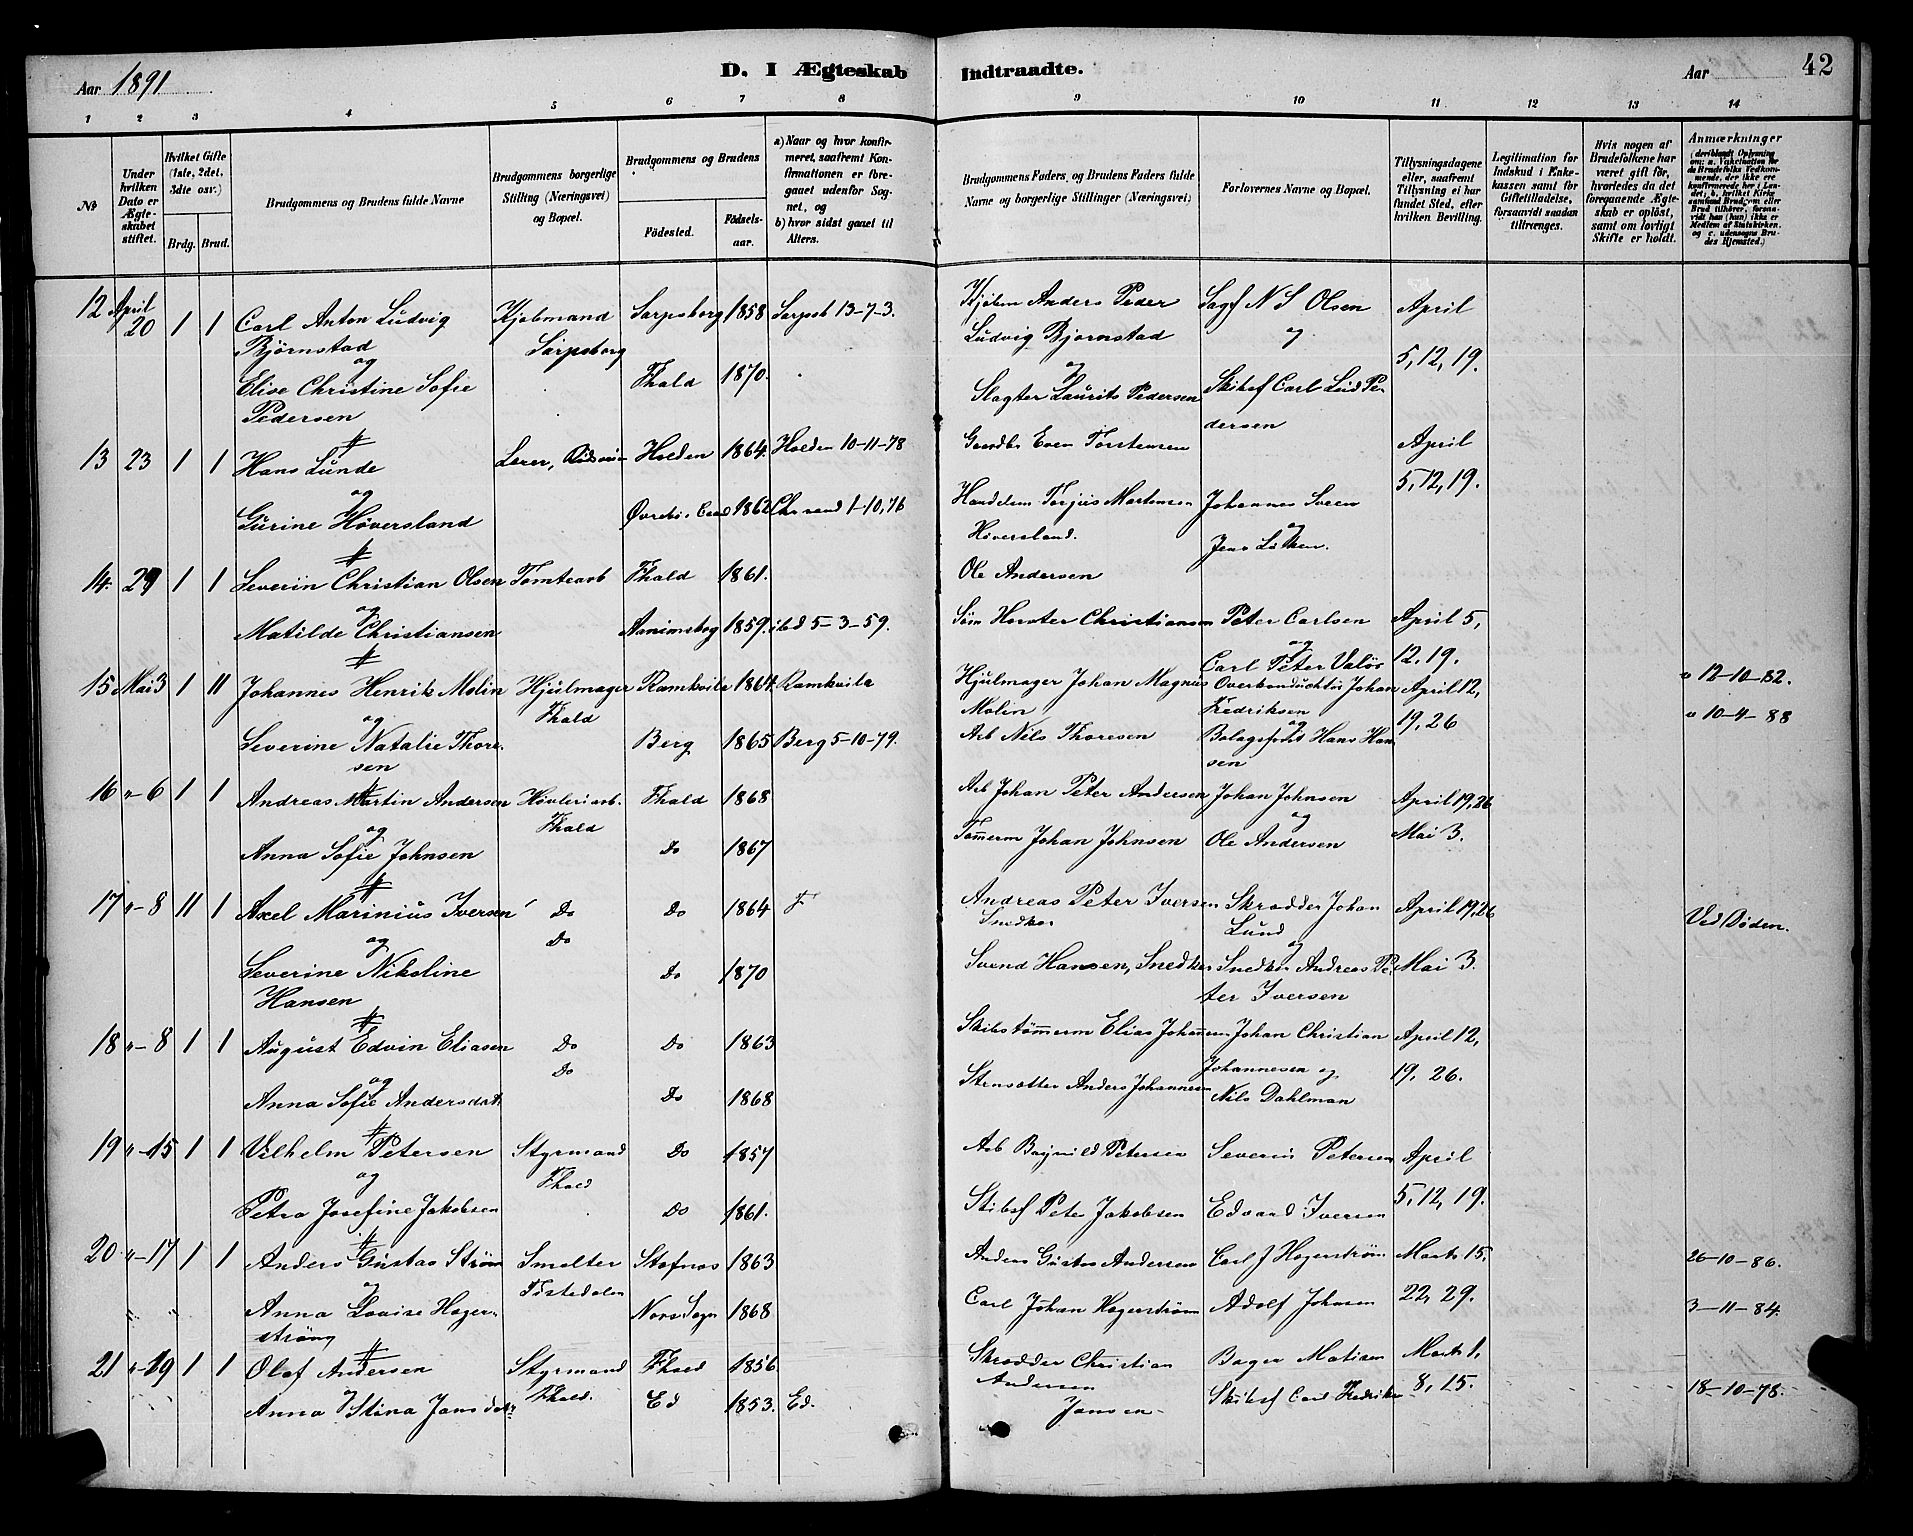 Aar 1891
D. I Ægteskab Indtraadte.
Aar
42
1 2 3 4 5 6 7 8 9 10 11 12 13 14
№
Under hvilken Dato er Ægteskabet stiftet.
Hvilket Gifte (1ste, 2det, 3dte osv.)
Brdg. Brud.
Brudgommens og Brudens fulde Navne
Brudgommens borgerlige Stilling (Næringsvei) og Bopæl.
Brudgommens og Brudens
Fødested.
Fødselsaar.
a) Naar og hvor konfirmeret, saafremt Konfirmationen er foregaaet udenfor Sognet, og
b) hvor sidst gaaet til Alters.
Brudgommens Faders, og Brudens Faders fulde Navne og borgerlige Stillinger (Næringsvei)
Forlovernes Navne og Bopæl.
Tillysningsdagene eller, saafremt Tillysning ei har fundet Sted, efter hvilken Bevilling.
Legitimation for Indskud i Enkekassen samt for Giftetilladelse, forsaavidt saadan tiltrænges.
Hvis nogen af Brudefolkene har været gift før, hvorledes da det foregaaende Ægteskab er opløst, samt om lovligt Skifte er holdt.
Anmærkninger
(deriblandt Oplysning om: a. Vakcination for de Brudefolks Vedkommende, der ikke ere konfirmerede her i Landet; b. hvilket Kirkesamfund Brudgom eller Brud tilhører, forsaavidt han (hun) ikke er Medlem af Statskirken, og c. udensogns Brudes Hjemsted.)
12 April 20 1 1 Carl Anton Ludvig Bjørnstad Kjøbmand Sarpsborg Sarpsborg 1858 Sarpsb 13-7-3. Kjøbm Anders Peder Ludvig Bjørnstad Sagf N S Olsen April
og
Elise Christine Sofie Pedersen Fhald 1870. Slagter Laurits Pedersen Skibsf Carl Lud Pedersen 5, 12, 19.
13 23 1 1 Hans Lunde Lærer, Holden 1864. Holden 10-11-78 Gaardbr Even Torstensen April
og
Gurine Høversland 1862 Chrsand 1-10,76 Handelsm Terjus Martensen Høversland. Johannes og Jens 5, 12, 19.
14. 29 1 1 Severiin Christian Olsen Tomtearb Fhald 1861. Ole Andersen
og
Matilde Christiansen 1859. ibd 5-3-59. Christiansen Peter Carlsen og Carl Peter April 5, 12, 19.
15 Mai 3 1 11 Johannes Henrik Molin Hjulmager Fhald Ramkvila 1864. Ramkvila Hjulmager Johan Magnus Molin Overkonduktør Johan Fredriksen April 12, v 12-10-82.
og
Severine Natalie Thoresen Berg 1865 Berg 5-10-79. Arb Nils Thoresen Hans Hansen 19, 26 v 10-4-88
16 "-6 1 1 Andreas Martin Andersen Høvleriarb. Fhald Fhald 1868 Arb Johan Peter Andersen Johan Johnsen April 19, 26
og
Anna Sofie Johnsen Do 1867 Tømmerm Johan Johnsen Ole Andersen Mai 3.
17 "-8 11 1 Axel Marinius Iversen Do Do Do 1864 Andreas Peter Iversen Snedker Skrædder Johan Lund April 19, 26 Ved Døden.
og
Severine Nikoline Hansen Do 1870 Svend Hansen, Snedker Snedker Andreas Peter Iversen Mai 3.
18 "-8 1 1 August Edvin Eliasen Do Do Do 1863 Skibstømmerm Elias Johannesen Johan Christian Johannesen og April 12,
og
Anna Sofie Andersdat. Do 1868 Anders Johannesen Nils Dahlman 19, 26.
19 "-15 1 1 Vilhelm Petersen Styrmand Fhald Do 1857 Arb Petersen Severin Petersen April
og
Petra Josefine Jakobsen Do 1861. Skibsf Peter Jakobsen Edvard Iversen 5, 12, 19.
20 "-17 1 1 Anders Gustav Strøm Smelter Tistedalen Stafnas 1863 Anders Gustav Andersen Carl J Hagerstrøm Marts 15, 26-10-86.
og
Anna Lovise Hagerstrøm Nors Sogn 1868 Carl Johan Hagerstrøm Adolf Johnsen 22, 29. 3-11-84.
21 "-19 1 1 Olaf Andersen Styrmand Fhald. Fhald 1856 Skrædder Christian Andersen Bager Matisen Marts 1,
og
Anna Stina Jansdatr Ed 1853. Ed. Jansen Skibsf Carl Fredriksen 8, 15. 18-10-78.